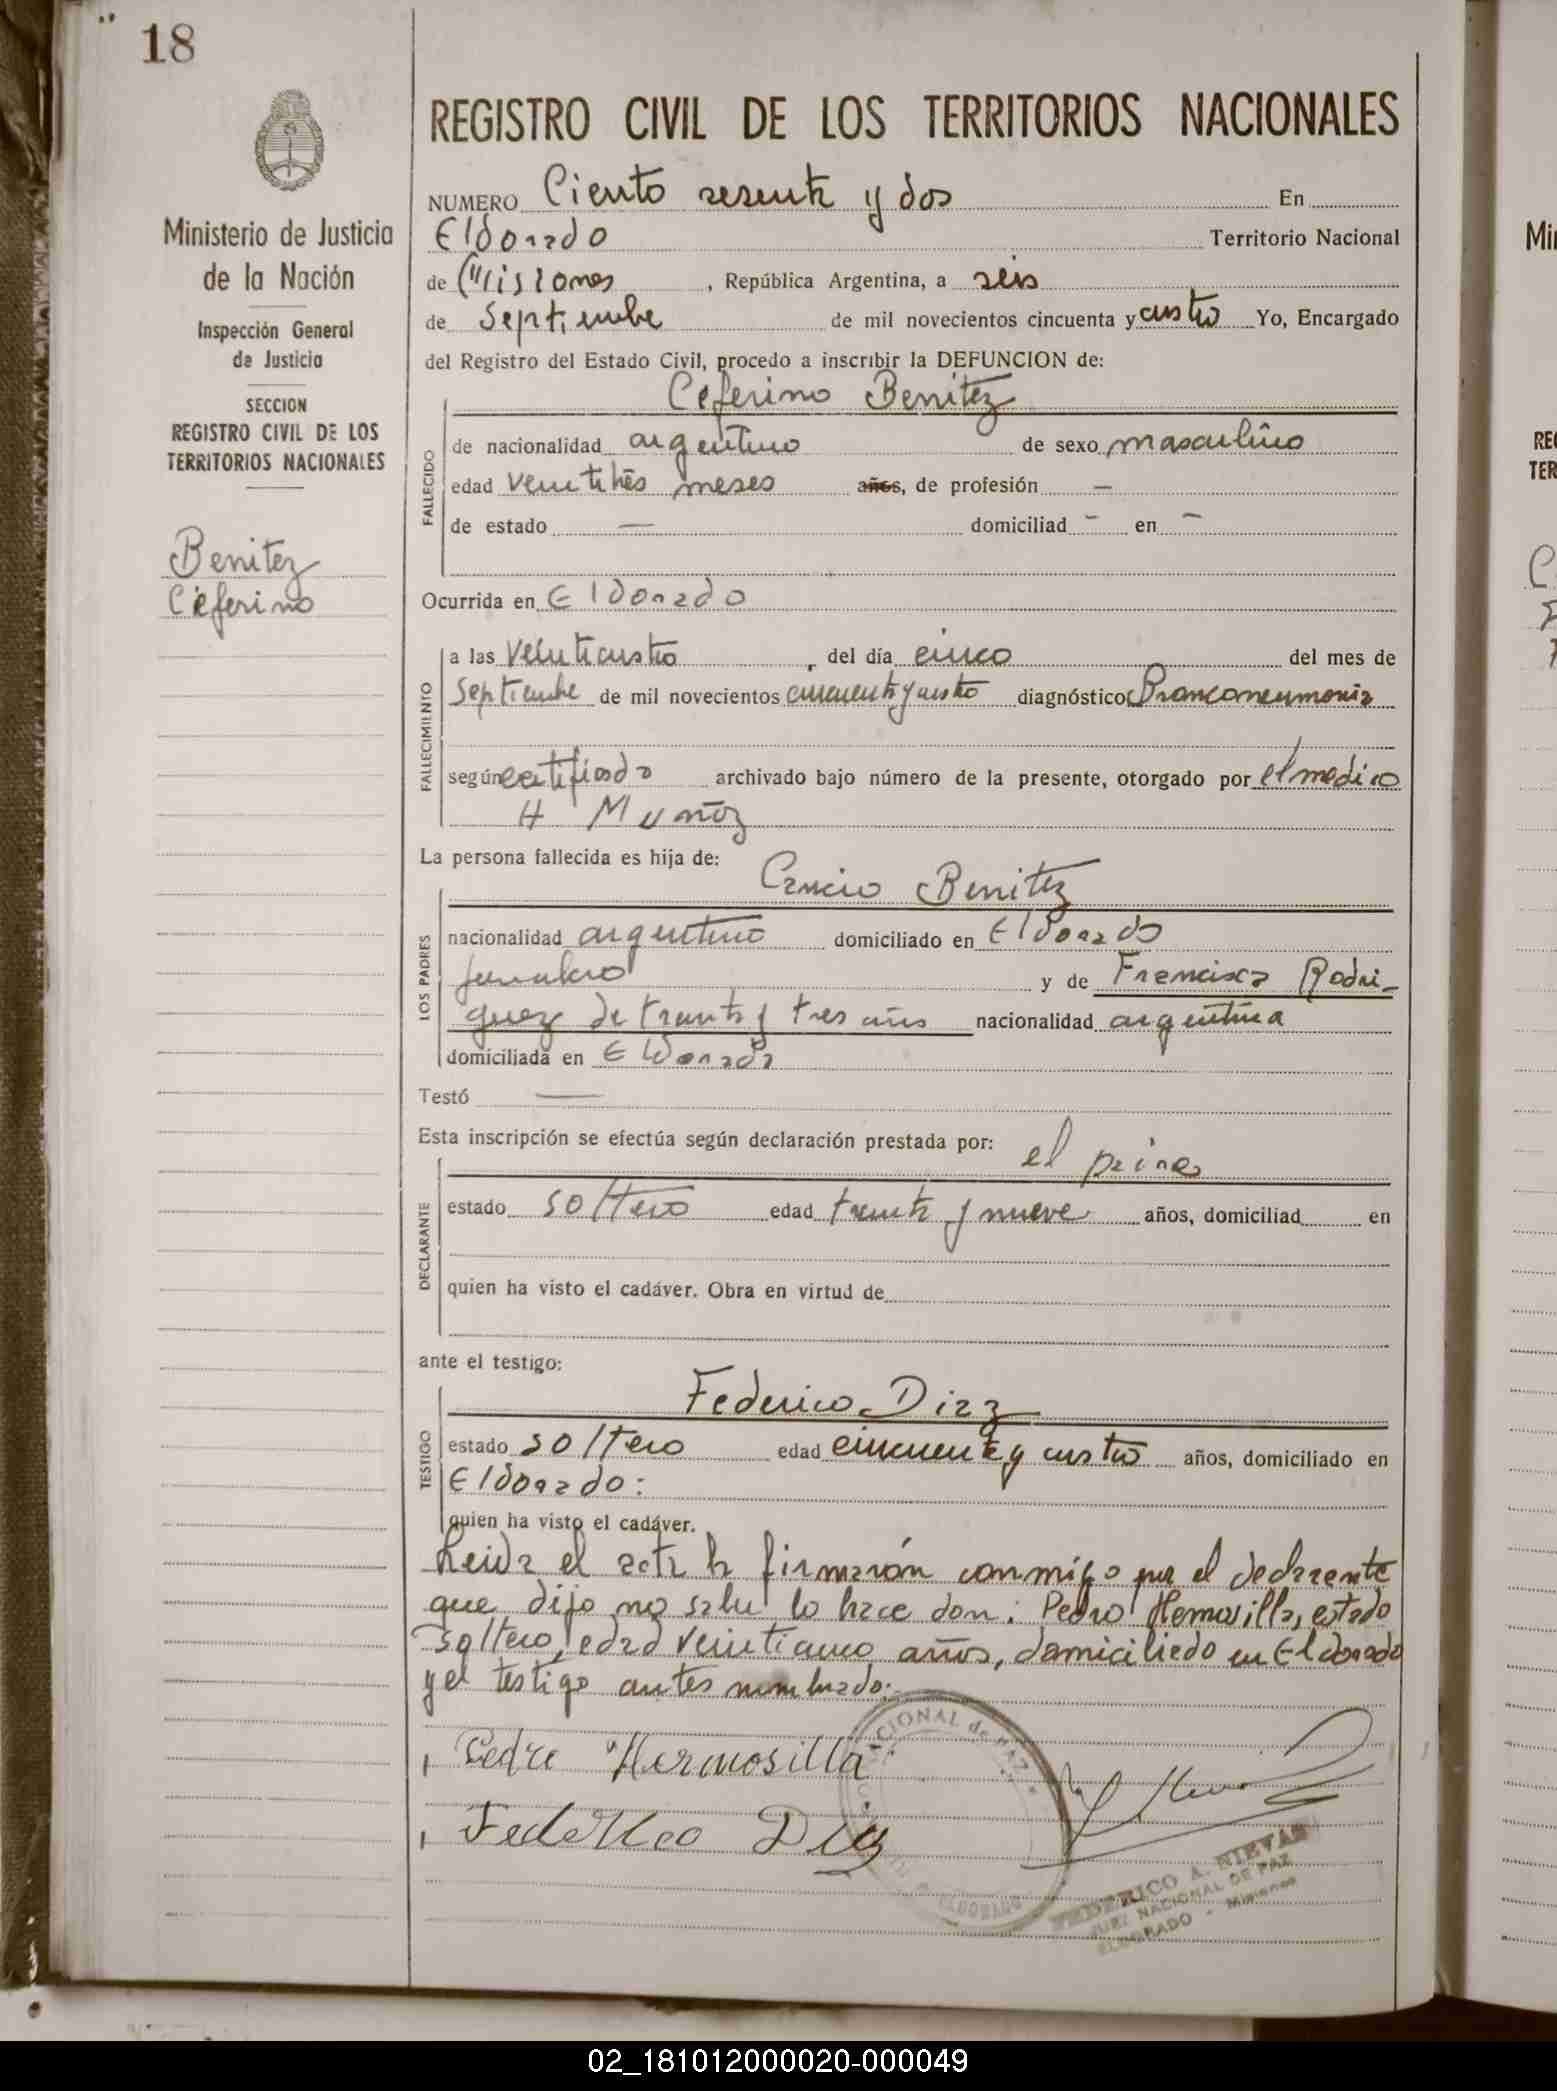 18
Ministerio de Justicia
de la Nación
Inspección General
de Justicia
SECCION
REGISTRO CIVIL DE LOS
TERRITORIOS NACIONALES
Benitez
Ceferino
REGISTRO CIVIL DE LOS TERRITORIOS NACIONALES
NUMERO Ciento sesenta y dos En
Eldorado Territorio Nacional
de Misiones, República Argentina, a seis
de Septiembre de mil novecientos cincuenta y cuatro Yo, Encargado
del Registro del Estado Civil, procedo a inscribir la DEFUNCION de:
Ceferino Benitez
FALLECIDO
de nacionalidad argentino de sexo masculino
edad veintitrés meses años, de profesión —
de estado — domiciliad - en -
Ocurrida en Eldorado
FALLECIMIENTO
a las veinticuatro, del día cinco del mes de
Septiembre de mil novecientos cincuenta y cuatro diagnóstico Bronconeumonia
según certificado archivado bajo número de la presente, otorgado por el medico
H Muñoz
La persona fallecida es hija de:
Cancio Benitez
LOS PADRES
nacionalidad argentino domiciliado en Eldorado
jornalero y de Francisca Rodri-
guez de treinta y tres años nacionalidad argentina
domiciliada en Eldorado
Testó —
Esta inscripción se efectúa según declaración prestada por:
el padre
DECLARANTE
estado soltero edad treinta y nueve años, domiciliad en
quien ha visto el cadáver. Obra en virtud de
ante el testigo:
Federico Diaz
TESTIGO
estado soltero edad cincuenta y cuatro años, domiciliado en
Eldorado:
quien ha visto el cadáver.
Leida el acta la firmarón conmigo por el declarante
que dijo no saber lo hace don: Pedro Hemosilla, estado
soltero, edad veinticinco años, domiciliado en Eldorado
y el testigo antes nombrado:
Pedro Hermosilla
Federico Diaz
NACIONAL de PAZ
ELDORADO
FEDERICO A. NIEVAS
JUEZ NACIONAL DE PAZ
ELDORADO - Misiones
Mi
RE
TER
02_181012000020-000049